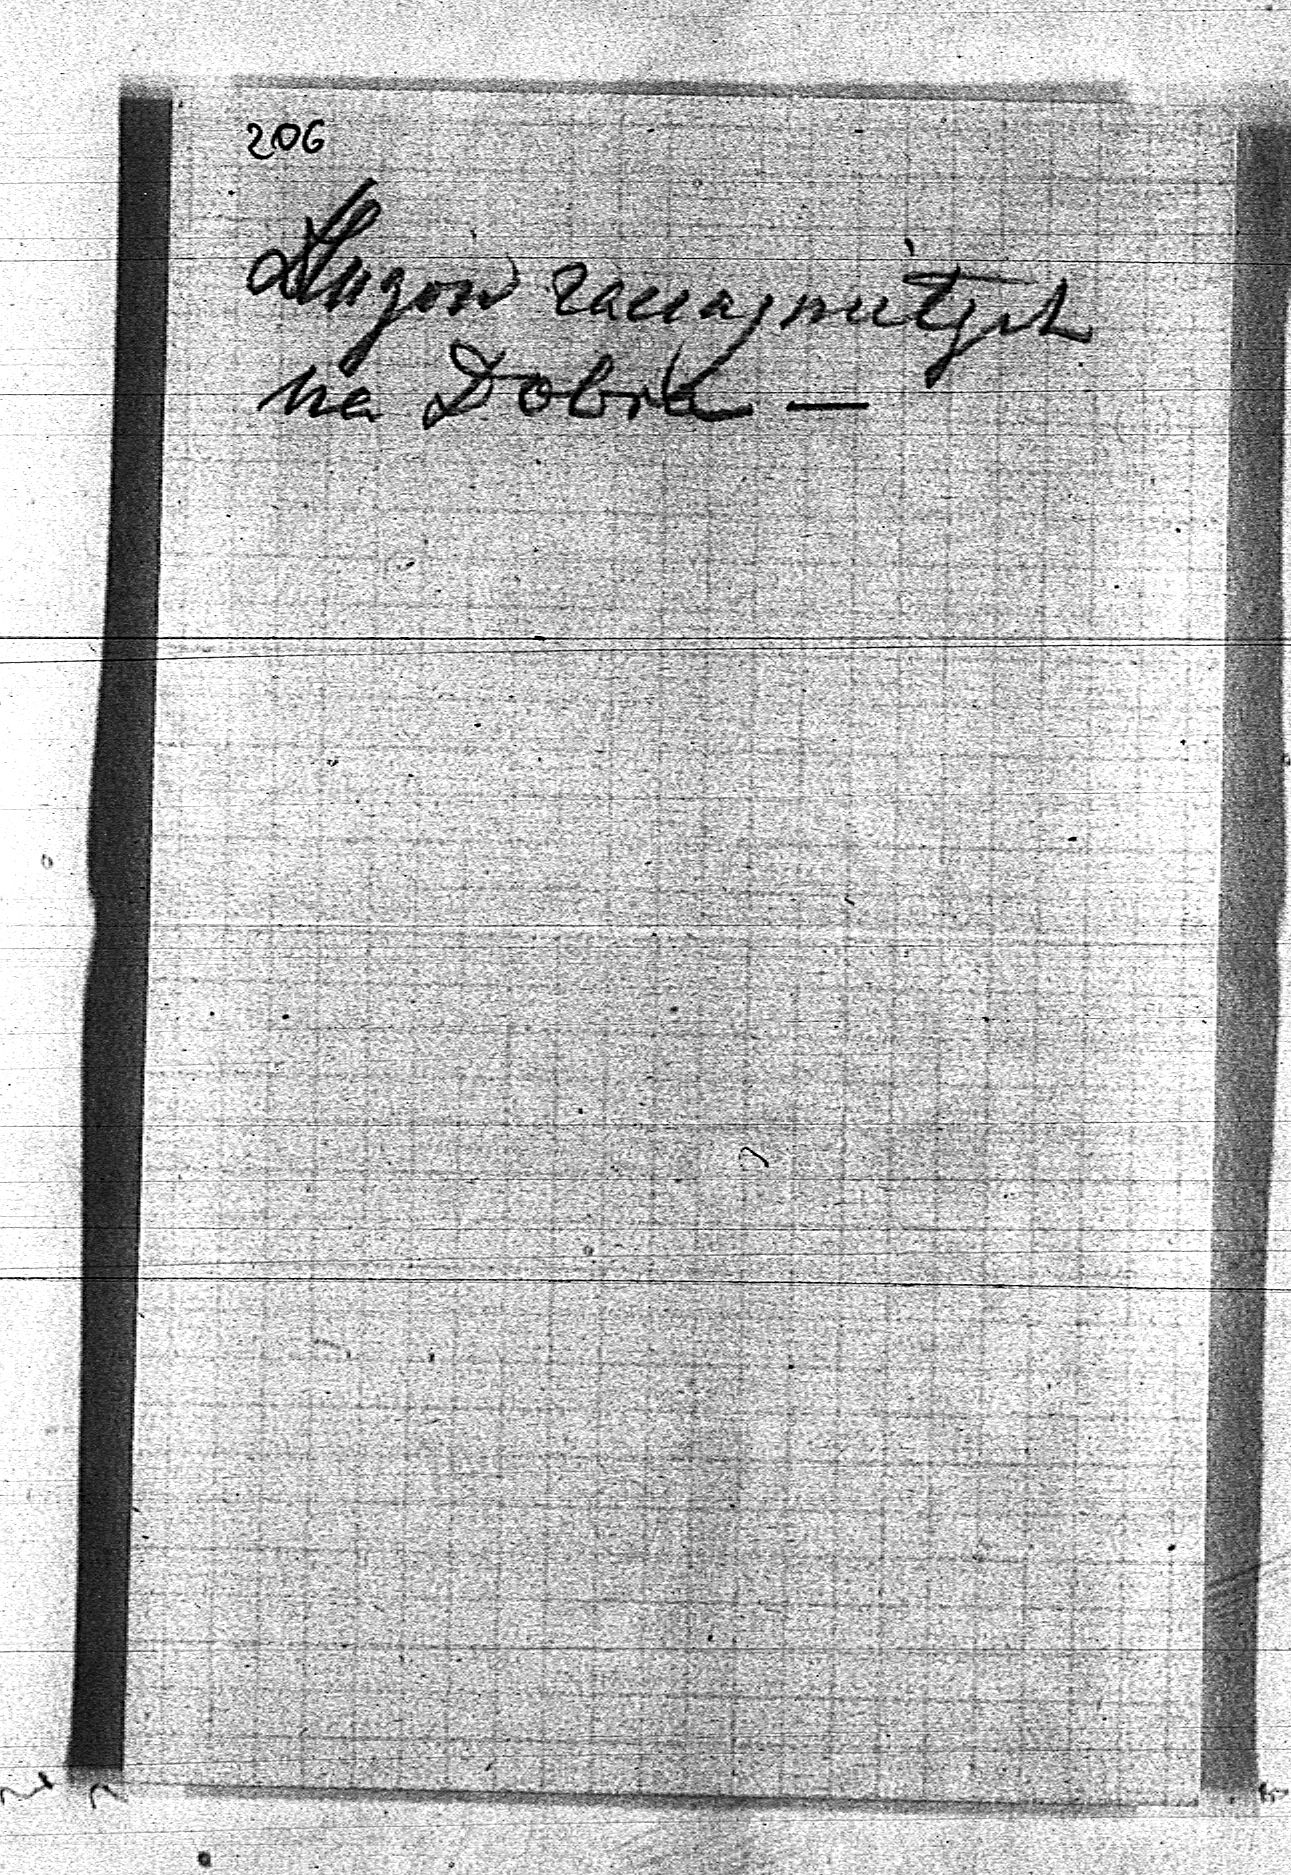 206
Długów zaciągniętych
na Dobra —